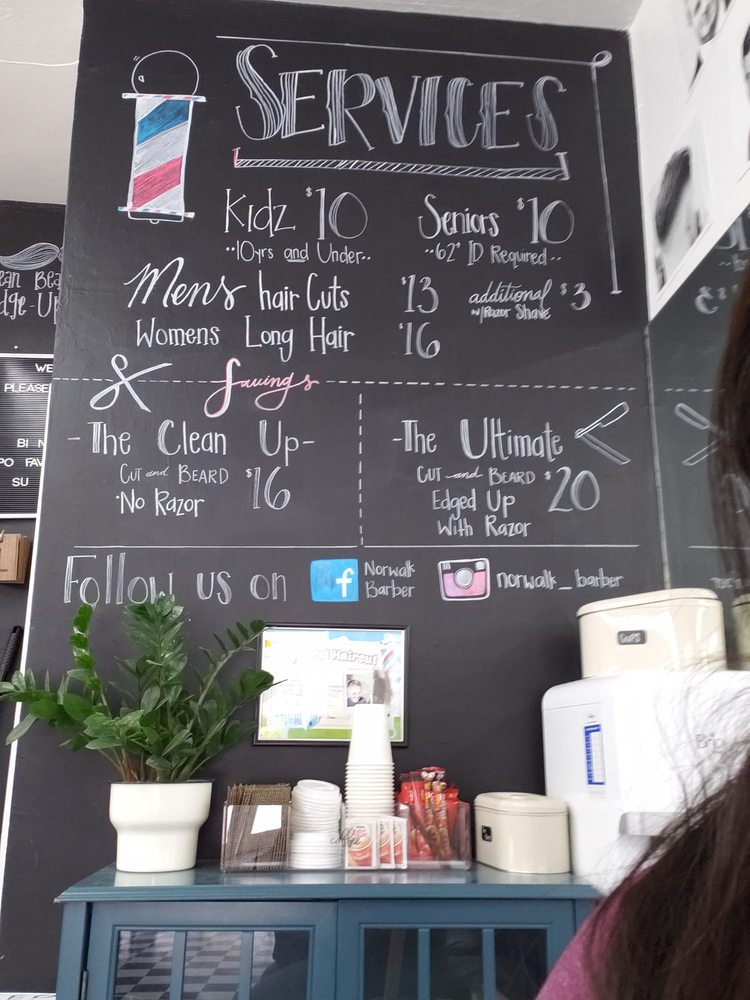 SERVICES
Kidz $10
··10yrs and Under··
Seniors $10
··62+ ID Required··
Mens hair Cuts $13
additional $3
w/Razor Shave
Womens Long Hair $16
Savings
-The Clean Up-
CUT and BEARD $16
·No Razor
-The Ultimate
CUT and BEARD $20
Edged Up
With Razor
Follow us on
f
Norwalk
Barber
norwalk_barber
Haircut
CUPS
WE
PLEASE
BI N
PO FAV
SU